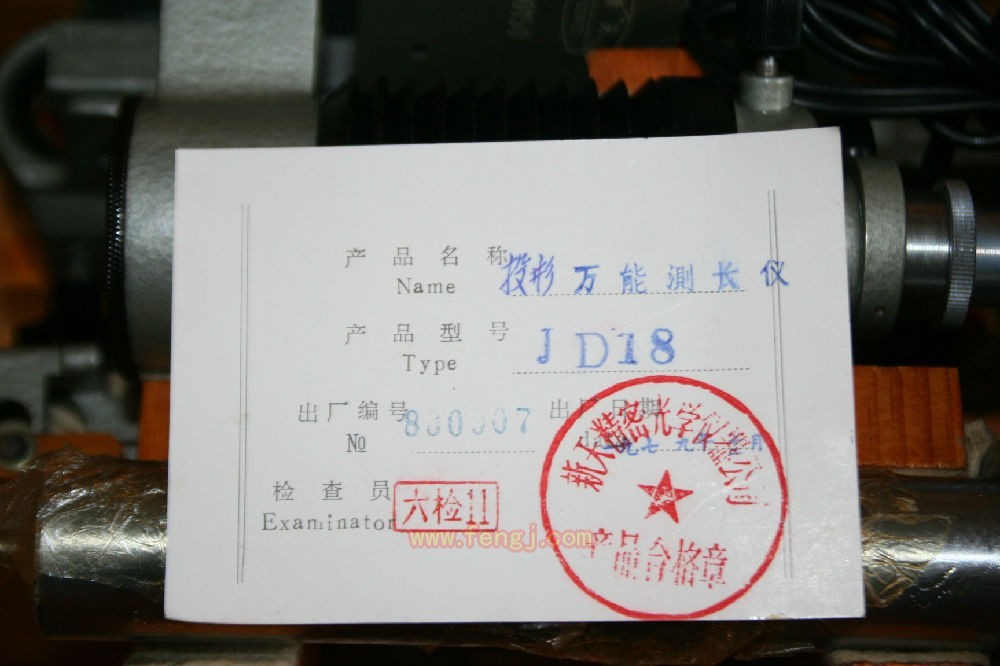 产品名称 投杉万能測长仪
Name
产品型号 JD18
Type
出厂编号 800007 出厂日期
№ 一九七九年 月
检查员 六检11
Examinator
新天精密光学仪器公司
产品合格章
www.fengj.com